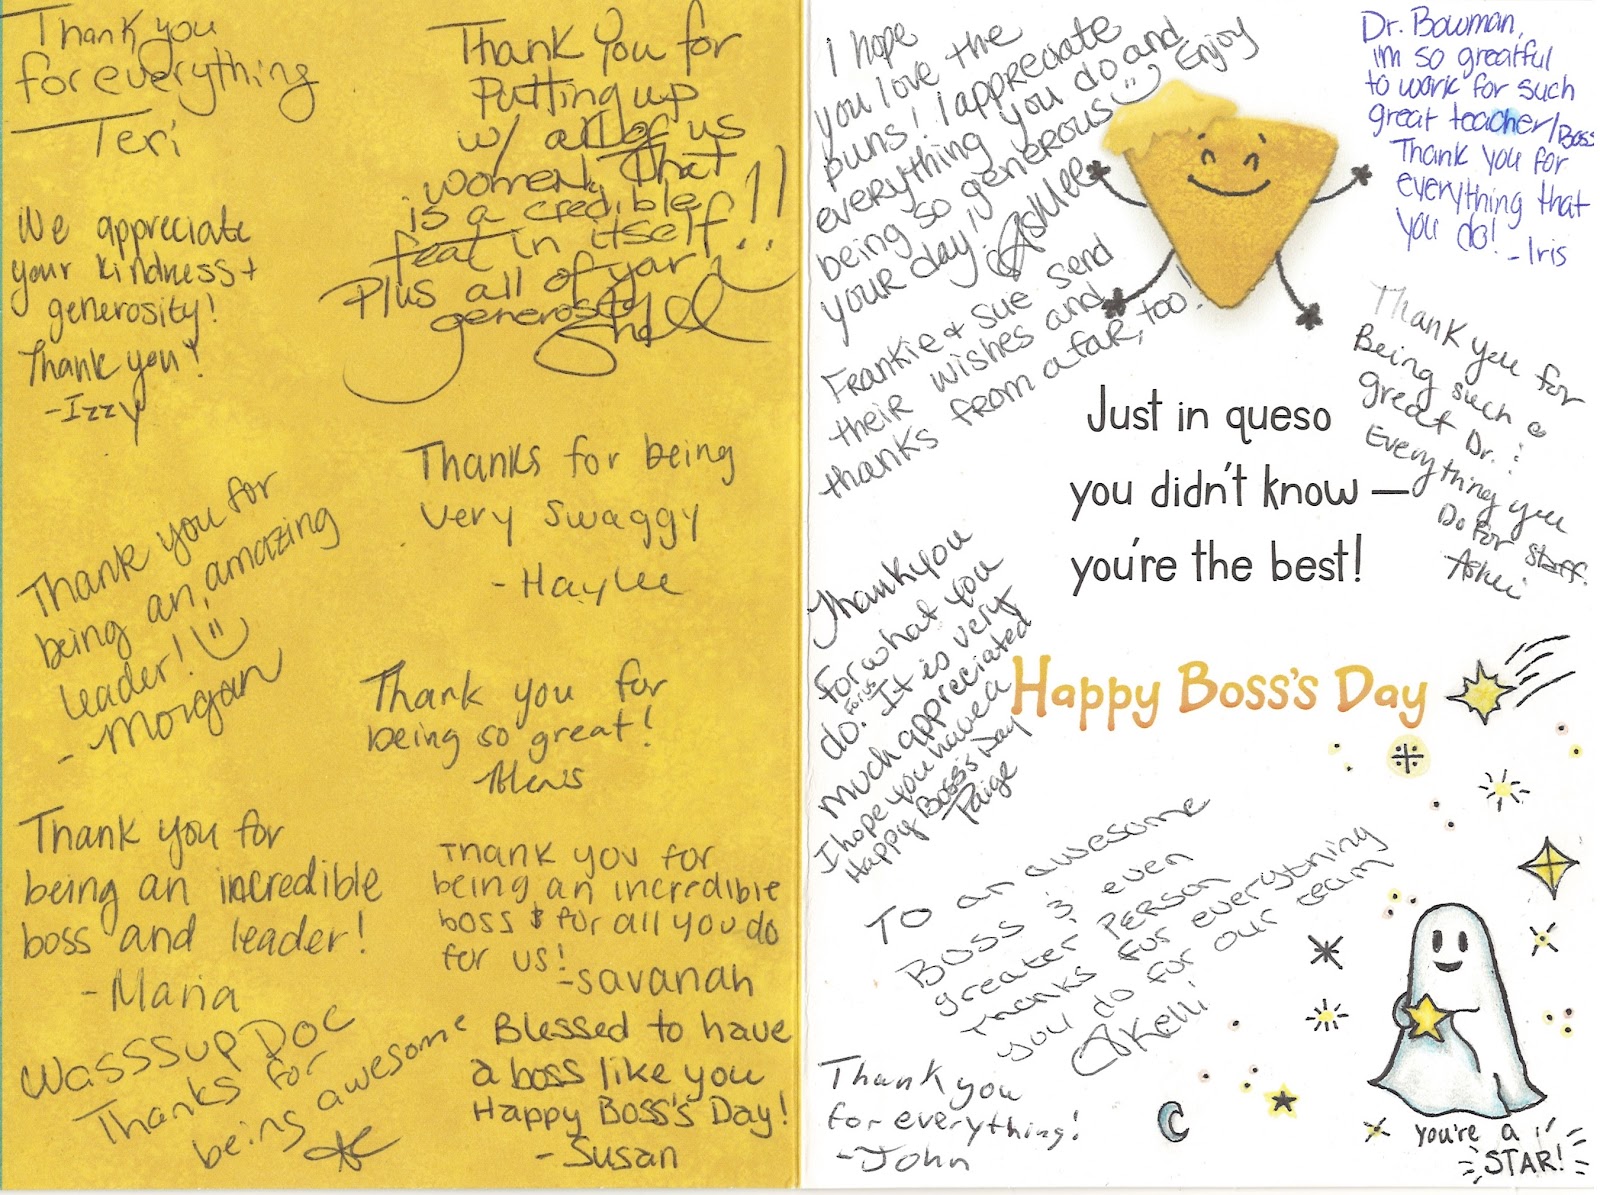 Thank you
for everything
Teri
We appreciate
your kindness +
generosity!
Thank you!
-Izzy
Thank you for
being an amazing
leader!
- Morgan
Thank you for
being an incredible
boss and leader!
- Maria
WasssSup Doc
Thanks for
being awesome
Thank You for
Putting up
w/ all of us
women, That
is a credible
feat in itself!!
Plus all of your
generosity
Thanks for being
very swaggy
- Haylee
Thank you for
being so great!
Thank you for
being an incredible
boss & for all you do
for us!
-Savanah
Blessed to have
a boss like you
Happy Boss's Day!
- Susan
I hope
you love the
puns! I appreciate
everything you do and
being so generous Enjoy
your day!
Ashlee
Frankie & Sue send
their wishes and
thanks from afar, too!
Dr. Bowman,
I'm so greatful
to work for such
great teacher/Boss
Thank you for
everything that
you do!
- Iris
Thank you for
Being such a
great Dr. :
Everything you
Do for staff.
Just in queso
you didn't know —
you're the best!
Happy Boss's Day
Thank you
for what you
do for us. It is very
much appreciated
I hope you have a
Happy Boss's Day
Paige
To an awesome
Boss & even
greater person
Thanks for everything
you do for our team
Kelli
Thank you
for everything!
- John
you're a
STAR!